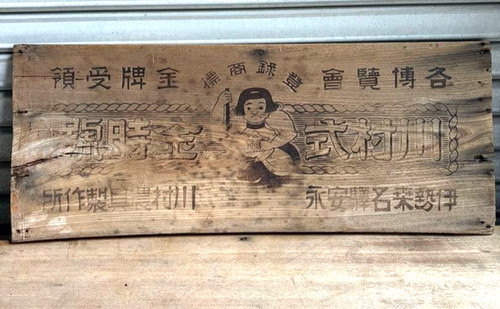 各博覽會 登録商標 金牌受領
川村式 金時
伊勢桑名驛安永 川村農具製作所